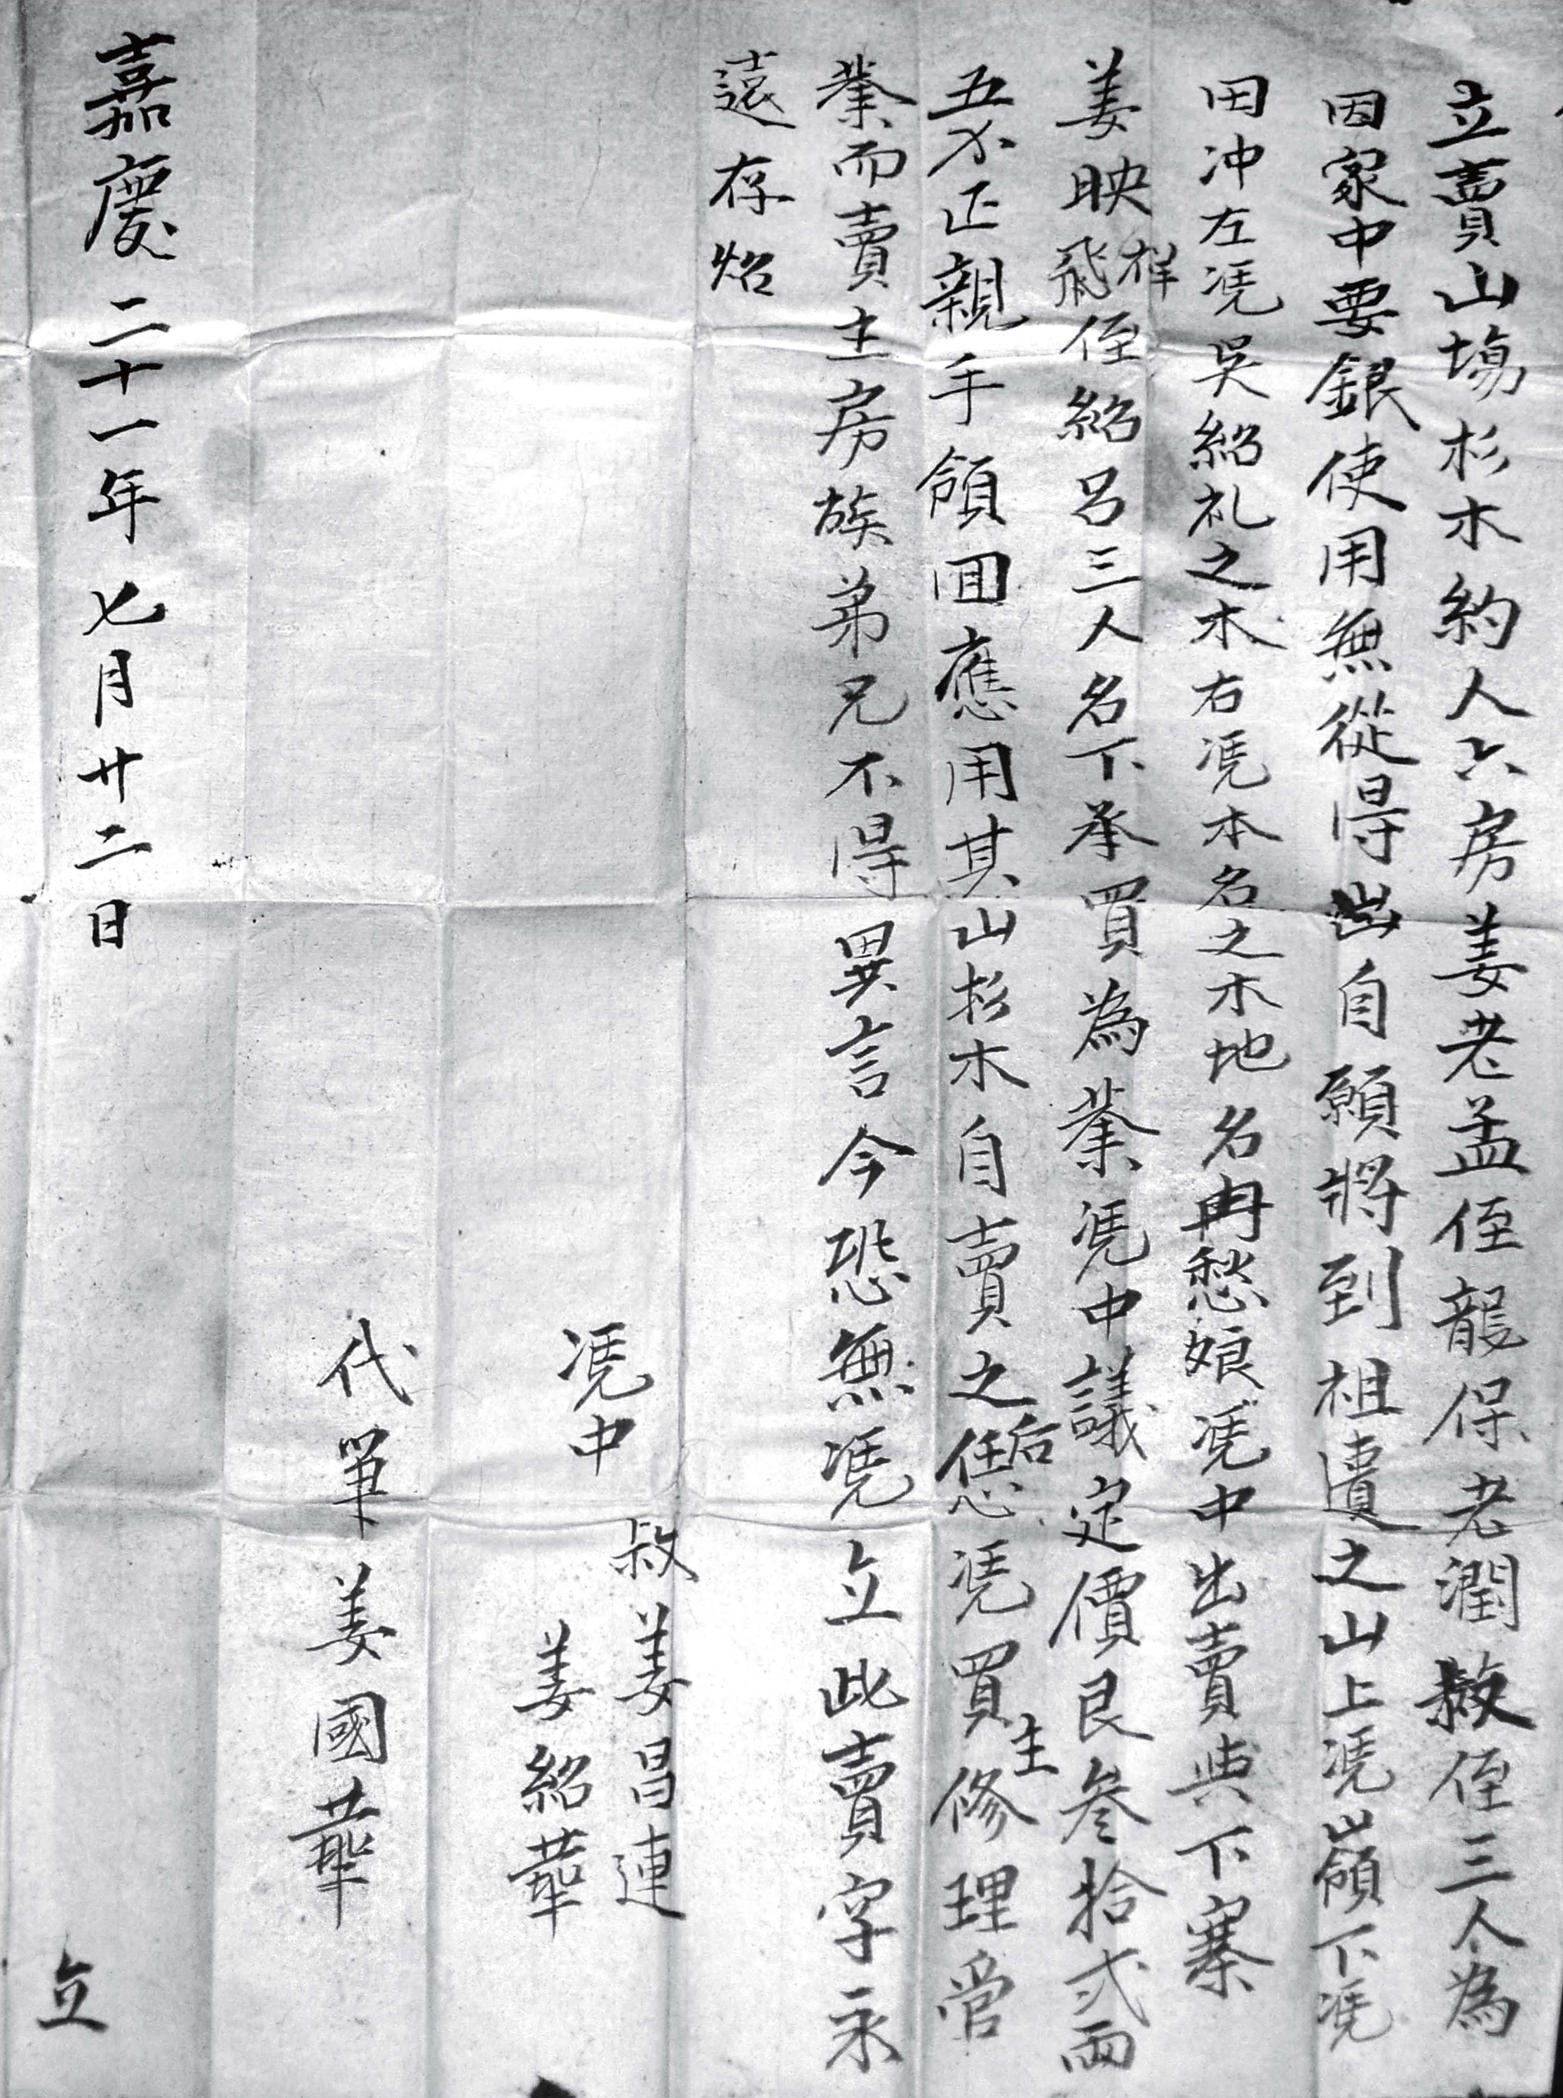 立賣山塲杉木約人六房姜老孟侄龍保老潤叔侄三人為
因家中要銀使用無從得出自願將到祖遺之山上凴嶺下凴
田冲左凴吳紹礼之木右凴本名之木地名冉愁娘凴中出賣與下寨
姜映飛祥侄紹呂三人名下承買為業凴中議定價艮叁拾弍両
五分正親手領囬應用其山杉木自賣之后任恁凴買主修理管
業而賣主房族弟兄不得異言今恐無凴立此賣字永
遠存炤
凴中 叔姜昌連
姜紹華
代筆姜國華
嘉慶二十一年七月廿二日 立